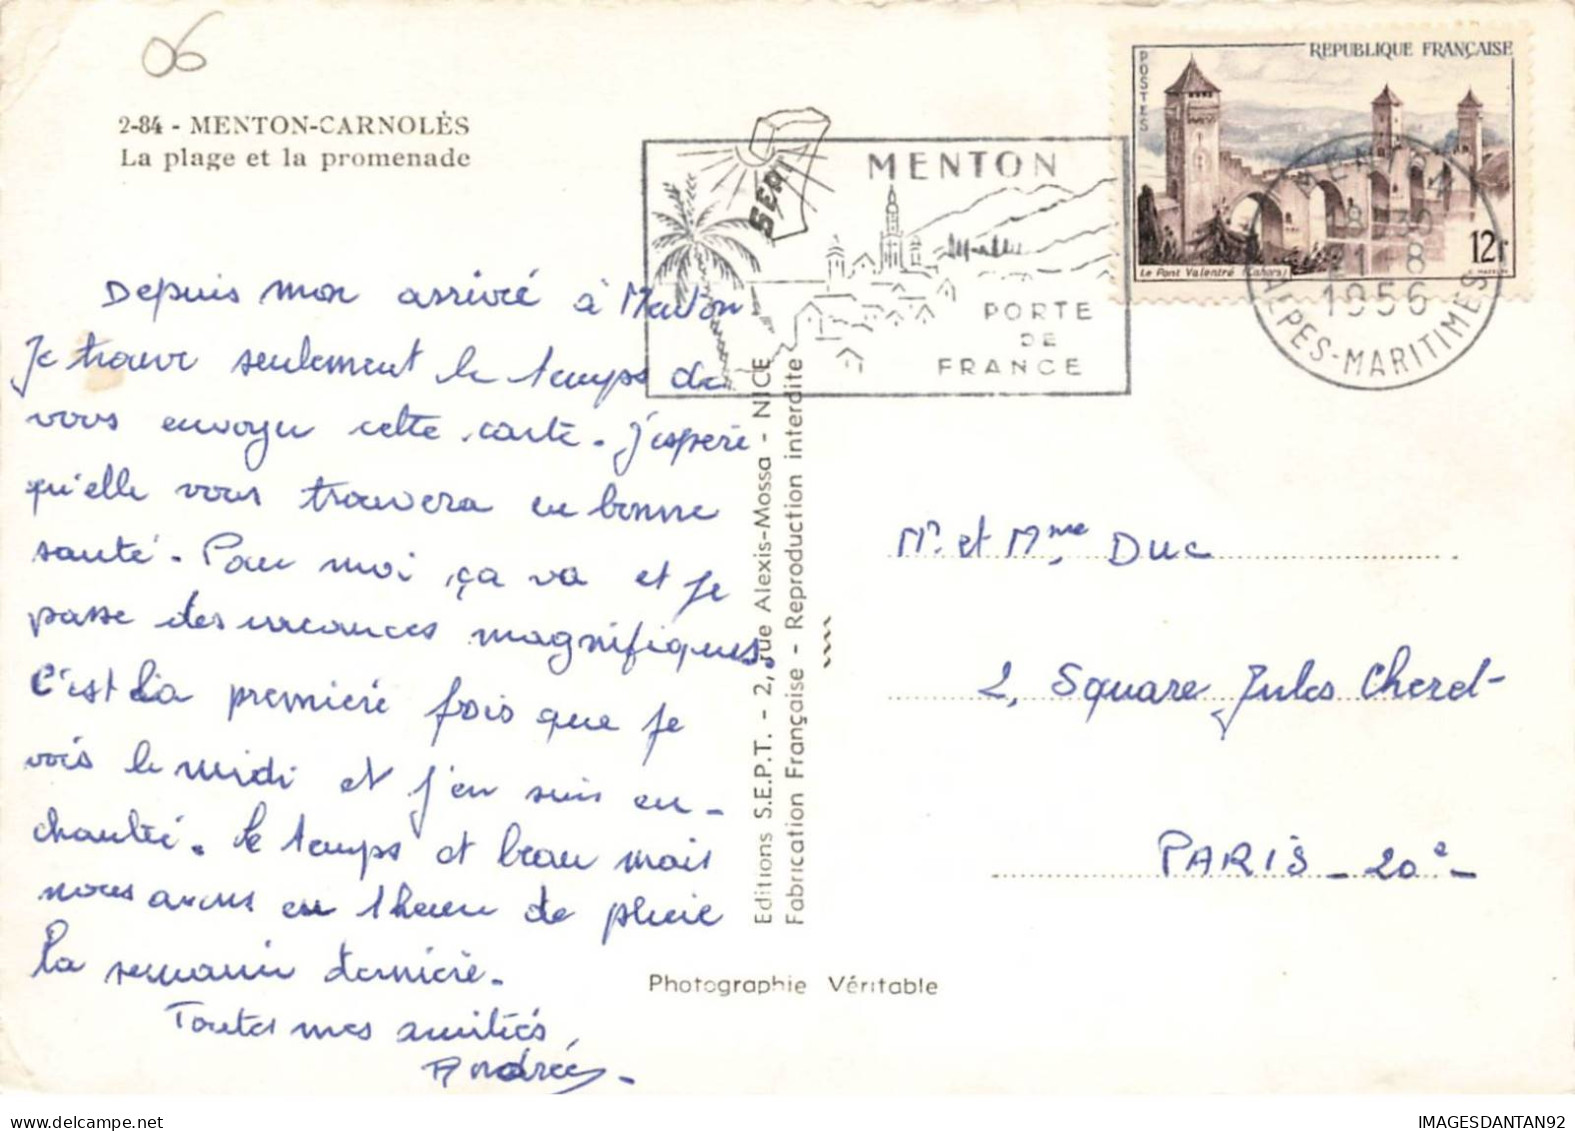 06
2-84 - MENTON-CARNOLÈS
La plage et la promenade
SEPT
MENTON
PORTE
DE
FRANCE
POSTES
REPUBLIQUE FRANÇAISE
Le Pont Valentré (Cahors)
12f
MENTON
18 H 30
1956
ALPES-MARITIMES
Depuis mon arrivée à Menton
Je trouve seulement le temps de
vous envoyer cette carte. J'espère
qu'elle vous trouvera en bonne
santé. Pour moi ça va et je
passe des vacances magnifiques.
C'est la première fois que je
vois le midi et j'en suis en-
chantée. Le temps et beau mais
nous avons eu 1 heure de pluie
la semaine dernière.
Toutes mes amitiés,
Andrée
Editions S.E.P.T. - 2, rue Alexis-Mossa - NICE
Fabrication Française - Reproduction interdite
Photographie Véritable
Mr. et Mme Duc
2, Square Jules Cheret
PARIS - 20e -
IMAGESDANTAN92